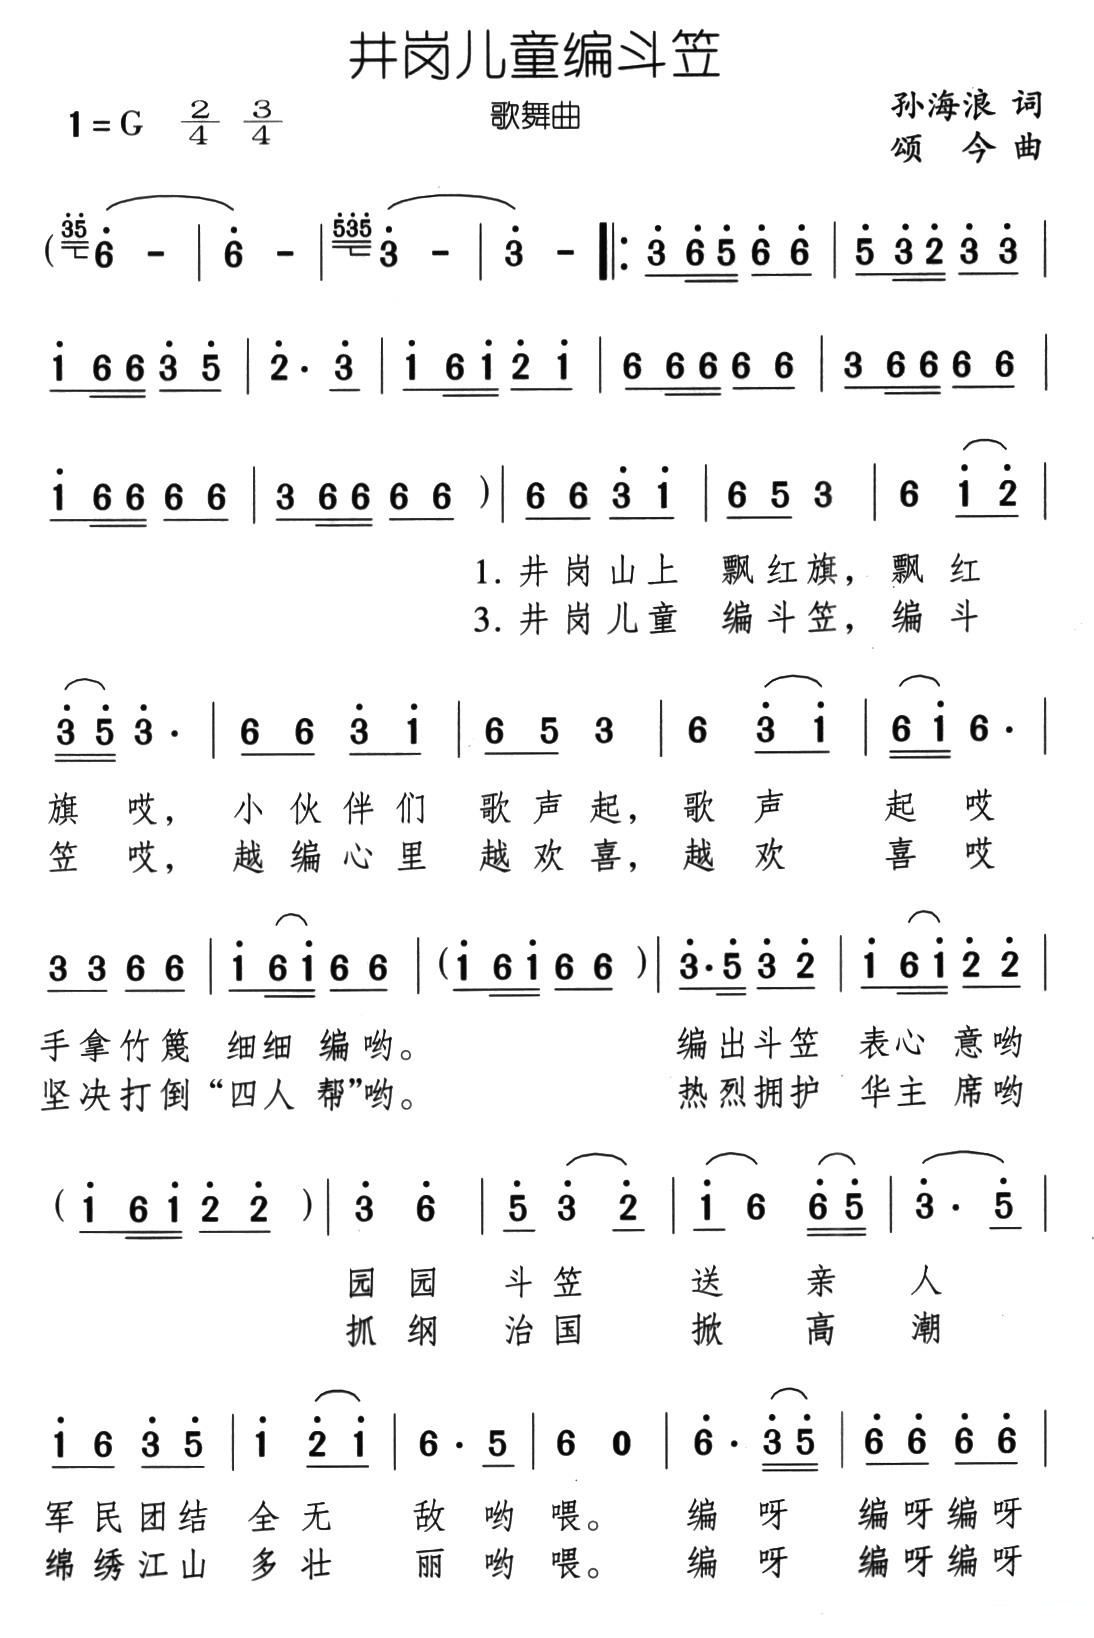 井岗儿童编斗笠
歌舞曲
1=G 2/4 3/4
孙海浪 词
颂 今 曲
( 35 6 - | 6 - | 535 3 - | 3 - ‖: 3 6 5 6 6 | 5 3 2 3 3 |
1 6 6 3 5 | 2 · 3 | 1 6 1 2 1 | 6 6 6 6 6 | 3 6 6 6 6 |
1 6 6 6 6 | 3 6 6 6 6 ) | 6 6 3 1 | 6 5 3 | 6 1 2 |
1. 井岗山上 飘红旗，飘 红
3. 井岗儿童 编斗笠，编 斗
3 5 3 · | 6 6 3 1 | 6 5 3 | 6 3 1 | 6 1 6 · |
旗 哎，小伙伴们 歌声起，歌声 起 哎
笠 哎，越编心里 越欢喜，越欢 喜 哎
3 3 6 6 | 1 6 1 6 6 | ( 1 6 1 6 6 ) | 3 · 5 3 2 | 1 6 1 2 2 |
手拿竹篾 细细 编哟。 编出斗笠 表心 意哟
坚决打倒 “四人 帮”哟。 热烈拥护 华主 席哟
( 1 6 1 2 2 ) | 3 6 | 5 3 2 | 1 6 6 5 | 3 · 5 |
园园 斗笠 送 亲 人
抓纲 治国 掀 高 潮
1 6 3 5 | 1 2 1 | 6 · 5 | 6 0 | 6 · 3 5 | 6 6 6 6 |
军民团结 全无 敌 哟 喂。 编 呀 编呀编呀
绵绣江山 多壮 丽 哟 喂。 编 呀 编呀编呀